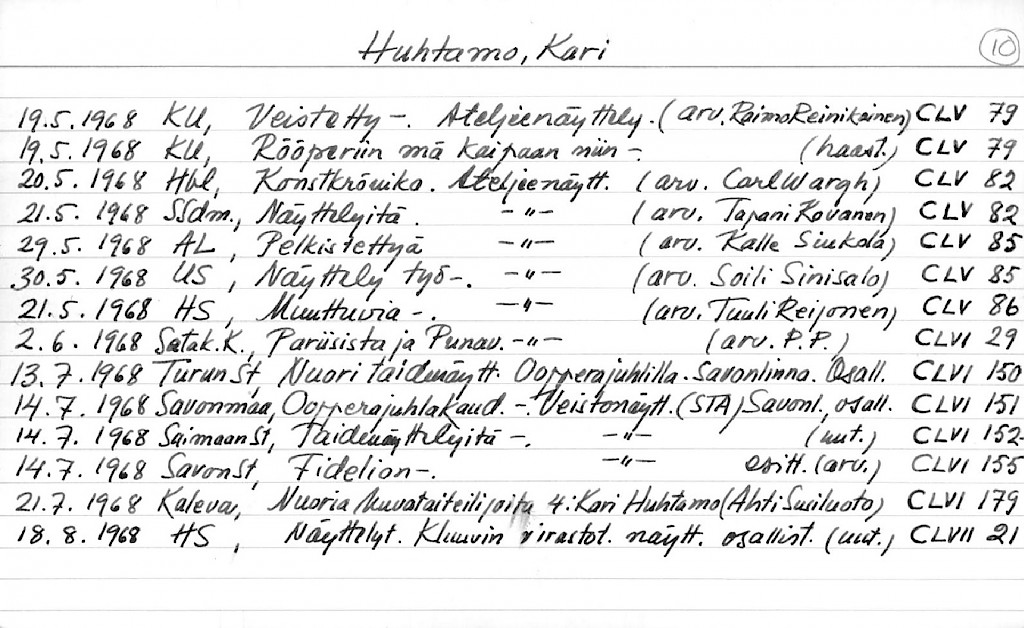 Huhtamo, Kari
10
19.5.1968 KU, Veistetty-. Ateljeenäyttely. (arv. Raimo Reinikainen) CLV 79
19.5.1968 KU, Rööperiin mä kaipaan niin-. (haast.) CLV 79
20.5.1968 Hbl, Konstkrönika. Ateljeenäytt. (arv. Carl Wargh) CLV 82
21.5.1968 SSdm., Näyttelyitä. -"- (arv. Tapani Kovanen) CLV 82
29.5.1968 AL, Pelkistettyä -"- (arv. Kalle Siukola) CLV 85
30.5.1968 US, Näyttely työ-. -"- (arv. Soili Sinisalo) CLV 85
21.5.1968 HS, Muuttuvia-. -"- (arv. Tuuli Reijonen) CLV 86
2.6.1968 Satak.K., Pariisista ja Punav. -"- (arv. P.P.) CLVI 29
13.7.1968 TurunSt, Nuori taidenäytt. Oopperajuhlilla. Savonlinna. Osall. CLVI 150
14.7.1968 Savonmaa, Oopperajuhlakaud.-. Veistonäytt. (STA) Savonl., osall. CLVI 151
14.7.1968 SaimaanSt, Taidenäyttelyitä-. -"- (uut.) CLVI 152
14.7.1968 SavonSt, Fidelion-. -"- esitt. (arv.) CLVI 155
21.7.1968 Kaleva, Nuoria kuvataiteilijoita 4: Kari Huhtamo (Ahti Susiluoto) CLVI 179
18.8.1968 HS, Näyttelyt. Kluuvin virastot. näytt. osallist. (uut.) CLVII 21